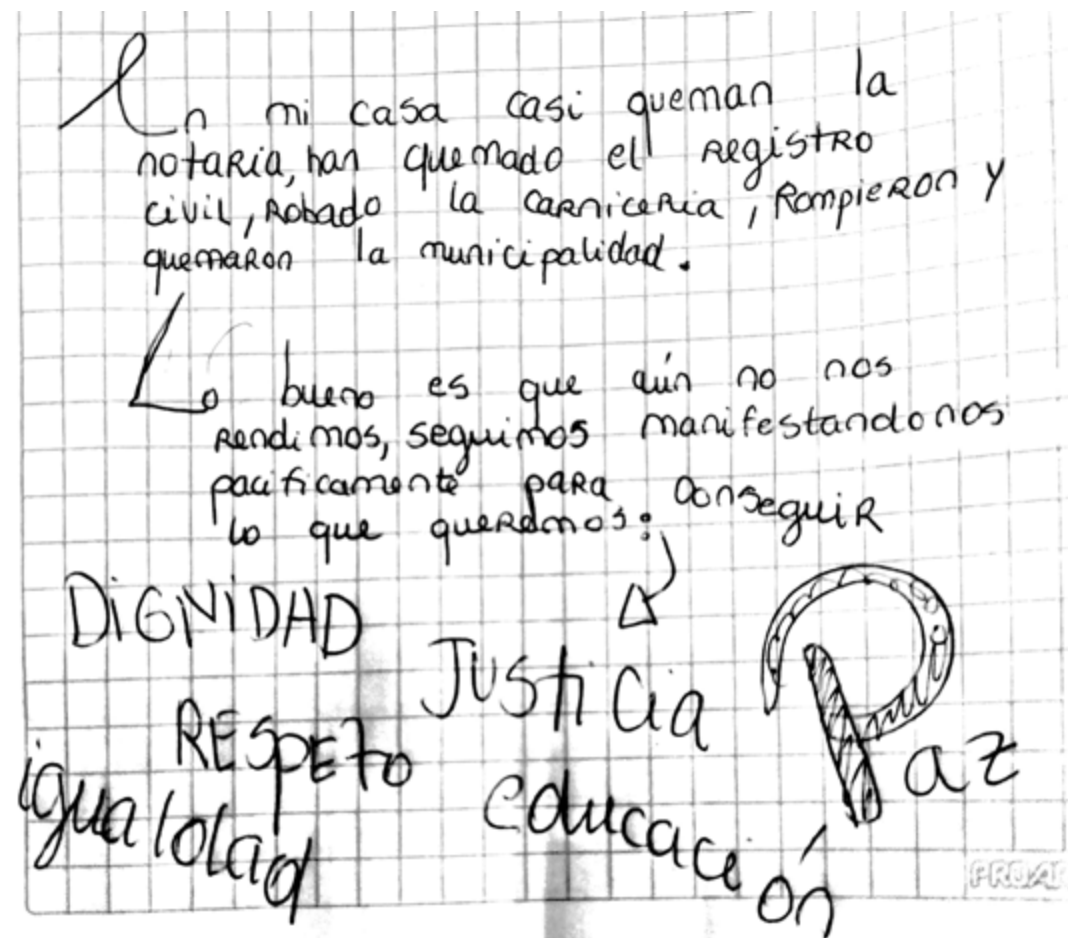 En mi casa casi queman la
notaRia, han quemado el RegistRo
civil, Robado la caRniceRia, RompieRon y
quemaRon la municipalidad.
Lo bueno es que aún no nos
Rendimos, seguimos manifestandonos
pacificamente paRa conseguiR
lo que queRemos:
DiGNiDAD
JUSticia
Paz
RESPETo
igualdad
educación